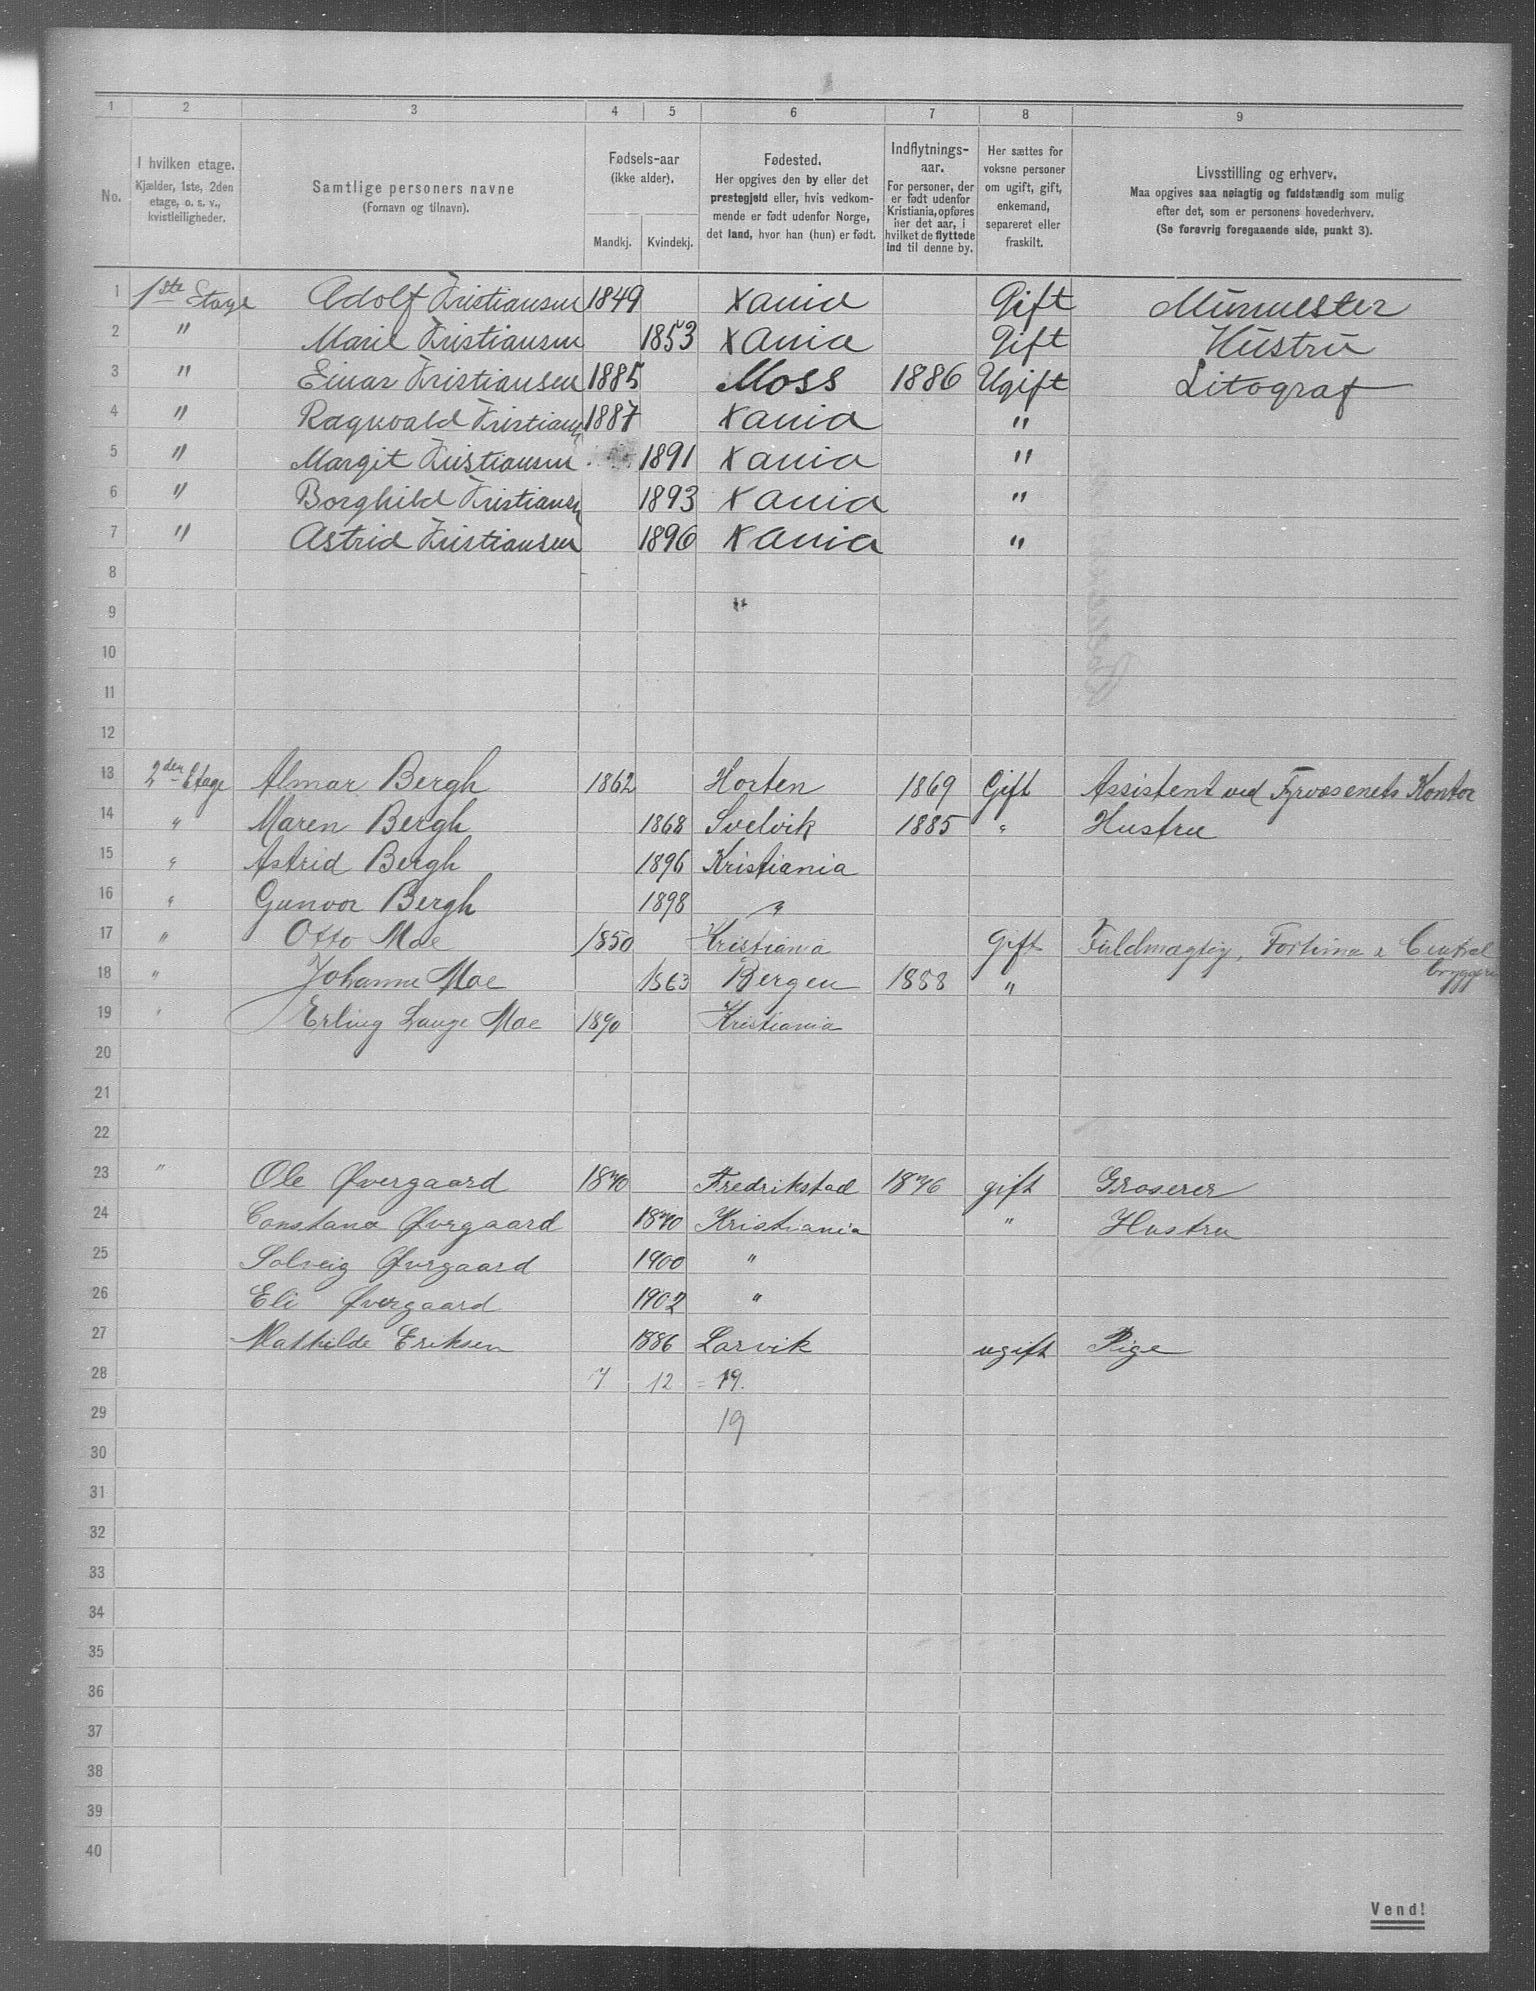 1 2 3 4 5 6 7 8 9
No.
I hvilken etage.
Kjælder, 1ste, 2den
etage, o. s. v.,
kvistleiligheder.
Samtlige personers navne
(Fornavn og tilnavn).
Fødsels-aar
(ikke alder).
Mandkj. Kvindekj.
Fødested.
Her opgives den by eller det
prestegjeld eller, hvis vedkom-
mende er født udenfor Norge,
det land, hvor han (hun) er født.
Indflytnings-
aar.
For personer, der
er født udenfor
Kristiania, opføres
her det aar, i
hvilket de flyttede
ind til denne by.
Her sættes for
voksne personer
om ugift, gift,
enkemand,
separeret eller
fraskilt.
Livsstilling og erhverv.
Maa opgives saa nøiagtig og fuldstændig som mulig
efter det, som er personens hovederhverv.
(Se forøvrig foregaaende side, punkt 3).
1 1ste Etage Adolf Kristiansen 1849 Xania Gift Murmester
2 " Marie Kristiansen 1853 Xania Gift Hustru
3 " Einar Kristiansen 1885 Moss 1886 Ugift Litograf
4 " Ragnvald Kristians 1887 Xania "
5 " Margit Kristiansen 1891 Xania "
6 " Borghild Kristiansn 1893 Xania "
7 " Astrid Kristiansen 1896 Xania "
8
9 "
10
11
12
13 2den Etage Almar Bergh 1862 Horten 1869 Gift Assistent ved Fyrvæsenets Kontor
14 " Maren Bergh 1868 Svelvik 1885 " Hustru
15 " Astrid Bergh 1896 Kristiania
16 " Gunvor Bergh 1898 "
17 " Otto Moe 1850 Kristiania Gift Fuldmægtig, Fortuna & Central
bryggeri
18 " Johanne Moe 1863 Bergen 1888 "
19 " Erling Lange Moe 1890 Kristiania
20
21
22
23 " Ole Øvergaard 1870 Fredrikstad 1876 gift Groserer
24 Constance Øvergaard 1870 Kristiania " Hustru
25 Solveig Øvergaard 1900 "
26 Eli Øvergaard 1902 "
27 Mathilde Eriksen 1886 Larvik ugift Pige
28 7 12 = 19.
29 19
30
31
32
33
34
35
36
37
38
39
40
Vend!